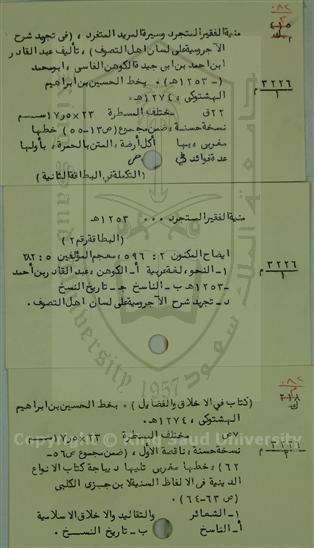 ٠٨٢
م
٣٢٢٦
١
م
منية الفقير المتجرد وسيرة المريد المتفرد ، (في تجريد شرح
الآجرومية على لسان اهل التصوف) ، تأليف عبد القادر
ابن احمد بن ابي جيدة الكوهن الفاسي ، ابو محمد
( - ١٢٥٣هـ) . بخط الحسين بن ابراهيم
الهشتوكي ، ١٢٧٤هـ .
٢٢ق مختلف المسطرة ٢٣×١٧٫٥ سم
نسخة حسنة ، ضمن مجموع (ص١٣-٥٥) خطها
مغربي ، بها أكل أرضة ، المتن بالحمرة ، بأولها
عدة فوائد في
(التكملة في البطاقة الثانية)
منية الفقير المتجرد ٠٠٠ ١٢٥٣هـ
(البطاقة رقم ٢)
٣٢٢٦
١
م
ايضاح المكنون ٢ : ٥٩٦ ، معجم المؤلفين ٥ : ٢٨٢
١- النحو ، لغة عربية أ- الكوهن ، عبد القادر بن أحمد
-١٢٥٣هـ ب- الناسخ ج- تاريخ النسخ
د- تجريد شرح الآجرومية على لسان اهل التصوف .
٢١٨
ك
م
(كتاب في الاخلاق والفضائل) . بخط الحسين بن ابراهيم
الهشتوكي ، ١٢٧٤هـ .
مختلف المسطرة ٢٣×١٧٫٥ سم
نسخة حسنة ، ناقصة الأول ، (ضمن مجموع ص٥٦-
٦٢) ، خطها مغربي تليها ديباجة كتاب الانوار
السنية في الالفاظ السنية لابن جزى الكلبي
(ص ٦٣-٦٤) .
١- الشعائر والتقاليد والاخلاق الاسلامية
أ- الناسخ ب- تاريخ النسخ .
1957
Copyright © King Saud University